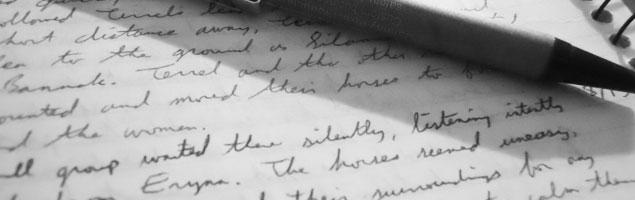 ollowed Terrels lea
short distance away,
to the ground as
Bannak. Terrel and the other
ounted and moved their horses to
d the women.
ll group waited there silently, listening intently
Erynn. The horses seemed uneasy,
their surroundings for any
calm them